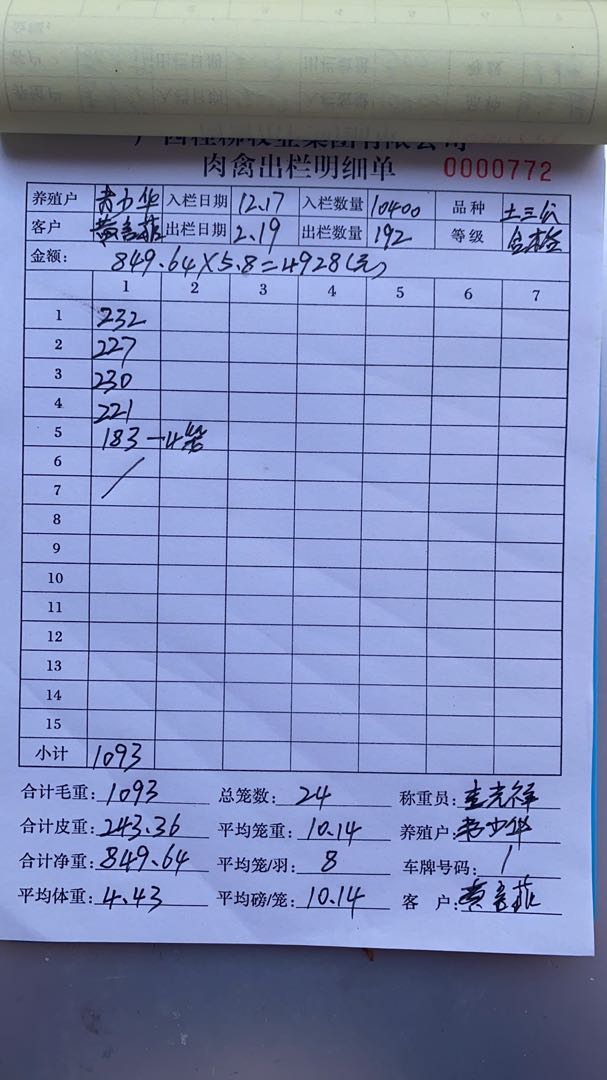 肉禽出栏明细单 0000772
养殖户 入栏日期 12.17 入栏数量 10400 品种 土三公
客户 出栏日期 2.19 出栏数量 192 等级
金额: 849.64×5.8=4928(元)
1 2 3 4 5 6 7
1 232
2 227
3 230
4 221
5 183-4笼
6
7
8
9
10
11
12
13
14
15
小计 1093
合计毛重: 1093 总笼数: 24 称重员:
合计皮重: 243.36 平均笼重: 10.14 养殖户:
合计净重: 849.64 平均笼/羽: 8 车牌号码: 1
平均体重: 4.43 平均磅/笼: 10.14 客 户: